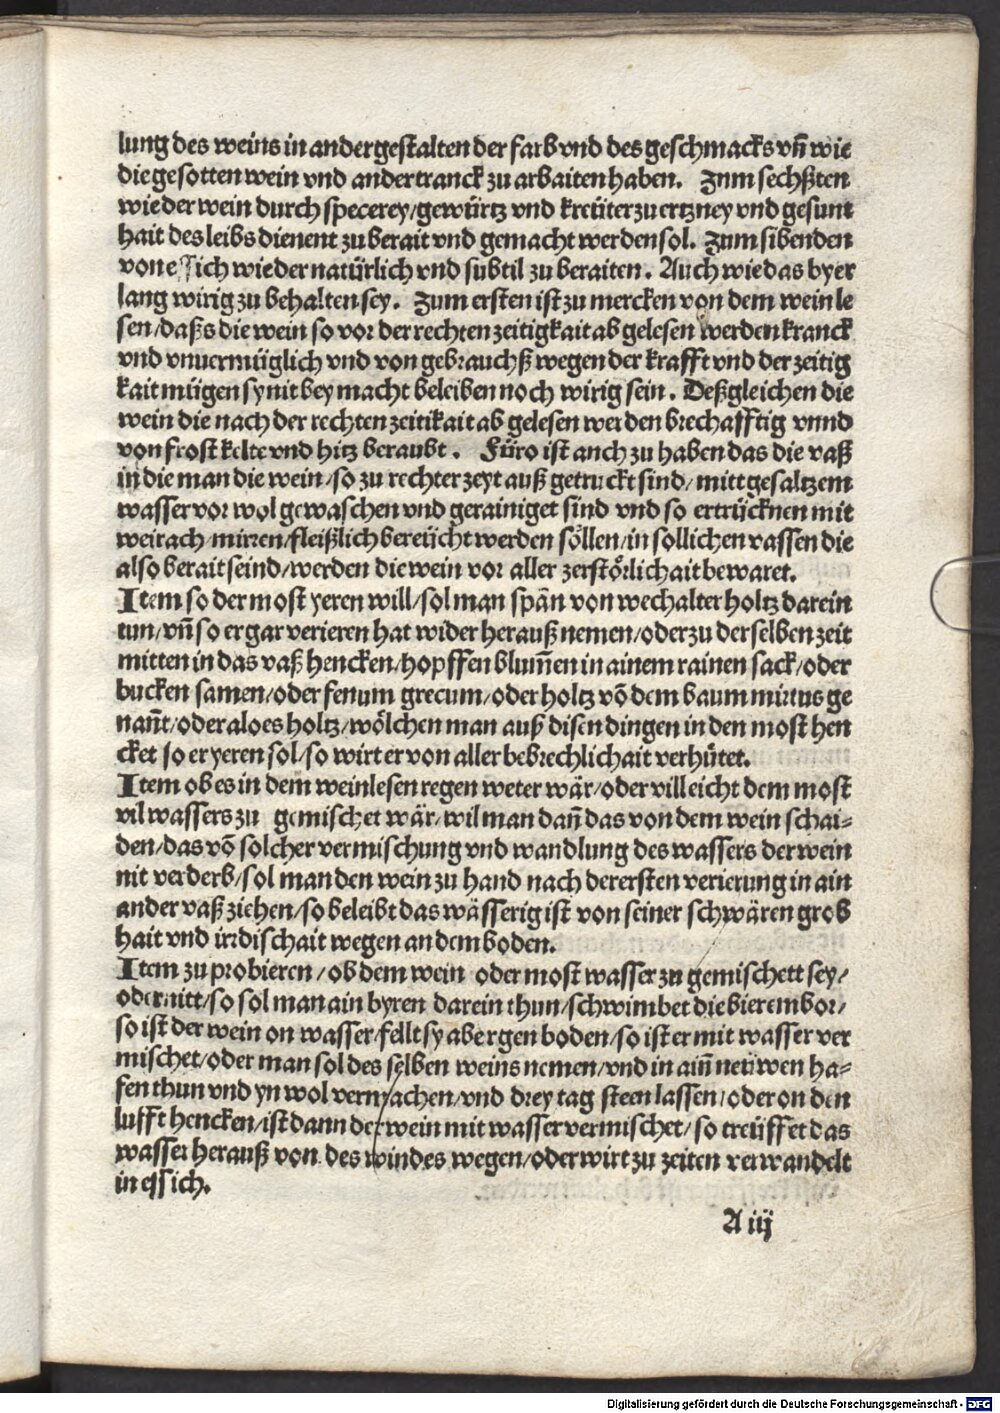 lung des weins in ander gestalten der farb vnd des geschmacks vñ wie
die gesotten wein vnd ander tranck zu arbaiten haben. Znm sechßten
wie der wein durch specerey/gewürtz vnd kreüter zu ertzney vnd gesunt
hait des leibs dienent zu berait vnd gemacht werden sol. Zum sibenden
von essich wie der natürlich vnd subtil zu beraiten. Auch wie das byer
lang wirig zu behalten sey. Zum ersten ist zu mercken von dem wein le
sen/daßs die wein so vor der rechten zeitigkait ab gelesen werden kranck
vnd vnuermüglich vnd von gebrauchß wegen der krafft vnd der zeitig
kait mügen sy nit bey macht beleiben noch wirig sein. Deßgleichen die
wein die nach der rechten zeitikait ab gelesen werden brechafftig vnnd
von frost kelte vnd hitz beraubt. Füro ist anch zu haben das die vaß
in die man die wein/so zu rechter zeyt auß getruckt sind/mitt gesaltzem
wasser vor wol gewaschen vnd gerainiget sind vnd so ertrücknen mit
weirach/mirren/fleißlich bereücht werden söllen/in sollichen vassen die
also berait seind/werden die wein vor aller zerstörlichait bewaret.
Item so der most yeren will/sol man spän von wechalter holtz darein
tun/vñ so er gar verieren hat wider herauß nemen/oder zu der selben zeit
mitten in das vaß hencken/hopffen blum̃en in ainem rainen sack/oder
bucken samen/oder fenum grecum/oder holtz võ dem baum mirtus ge
nañt/oder aloes holtz/wölchen man auß disen dingen in den most hen
cket so er yeren sol/so wirt er von aller bebrechlichait verhütet.
Item ob es in dem weinlesen regen weter wär/oder villeicht dem most
vil wassers zu gemischet wär/wil man dañ das von dem wein schai-
den/das võ solcher vermischung vnd wandlung des wassers der wein
nit verderb/sol man den wein zu hand nach der ersten verierung in ain
ander vaß ziehen/so beleibt das wässerig ist von seiner schwären grob
hait vnd irrdischait wegen an dem boden.
Item zu probieren/ob dem wein oder most wasser zu gemischett sey/
oder nitt/so sol man ain byren darein thun/schwimbet die bieren bor/
so ist der wein on wasser/fellt sy aber gen boden/so ist er mit wasser ver
mischet/oder man sol des selben weins nemen/vnd in aiñ neüwen ha-
fen thun vnd yn wol vermachen/vnd drey tag steen lassen/oder on den
lufft hencken/ist dann der wein mit wasser vermischet/so treüffet das
wasser herauß von des windes wegen/oder wirt zu zeiten verwandelt
in essich.
A iij
Digitalisierung gefördert durch die Deutsche Forschungsgemeinschaft - DFG